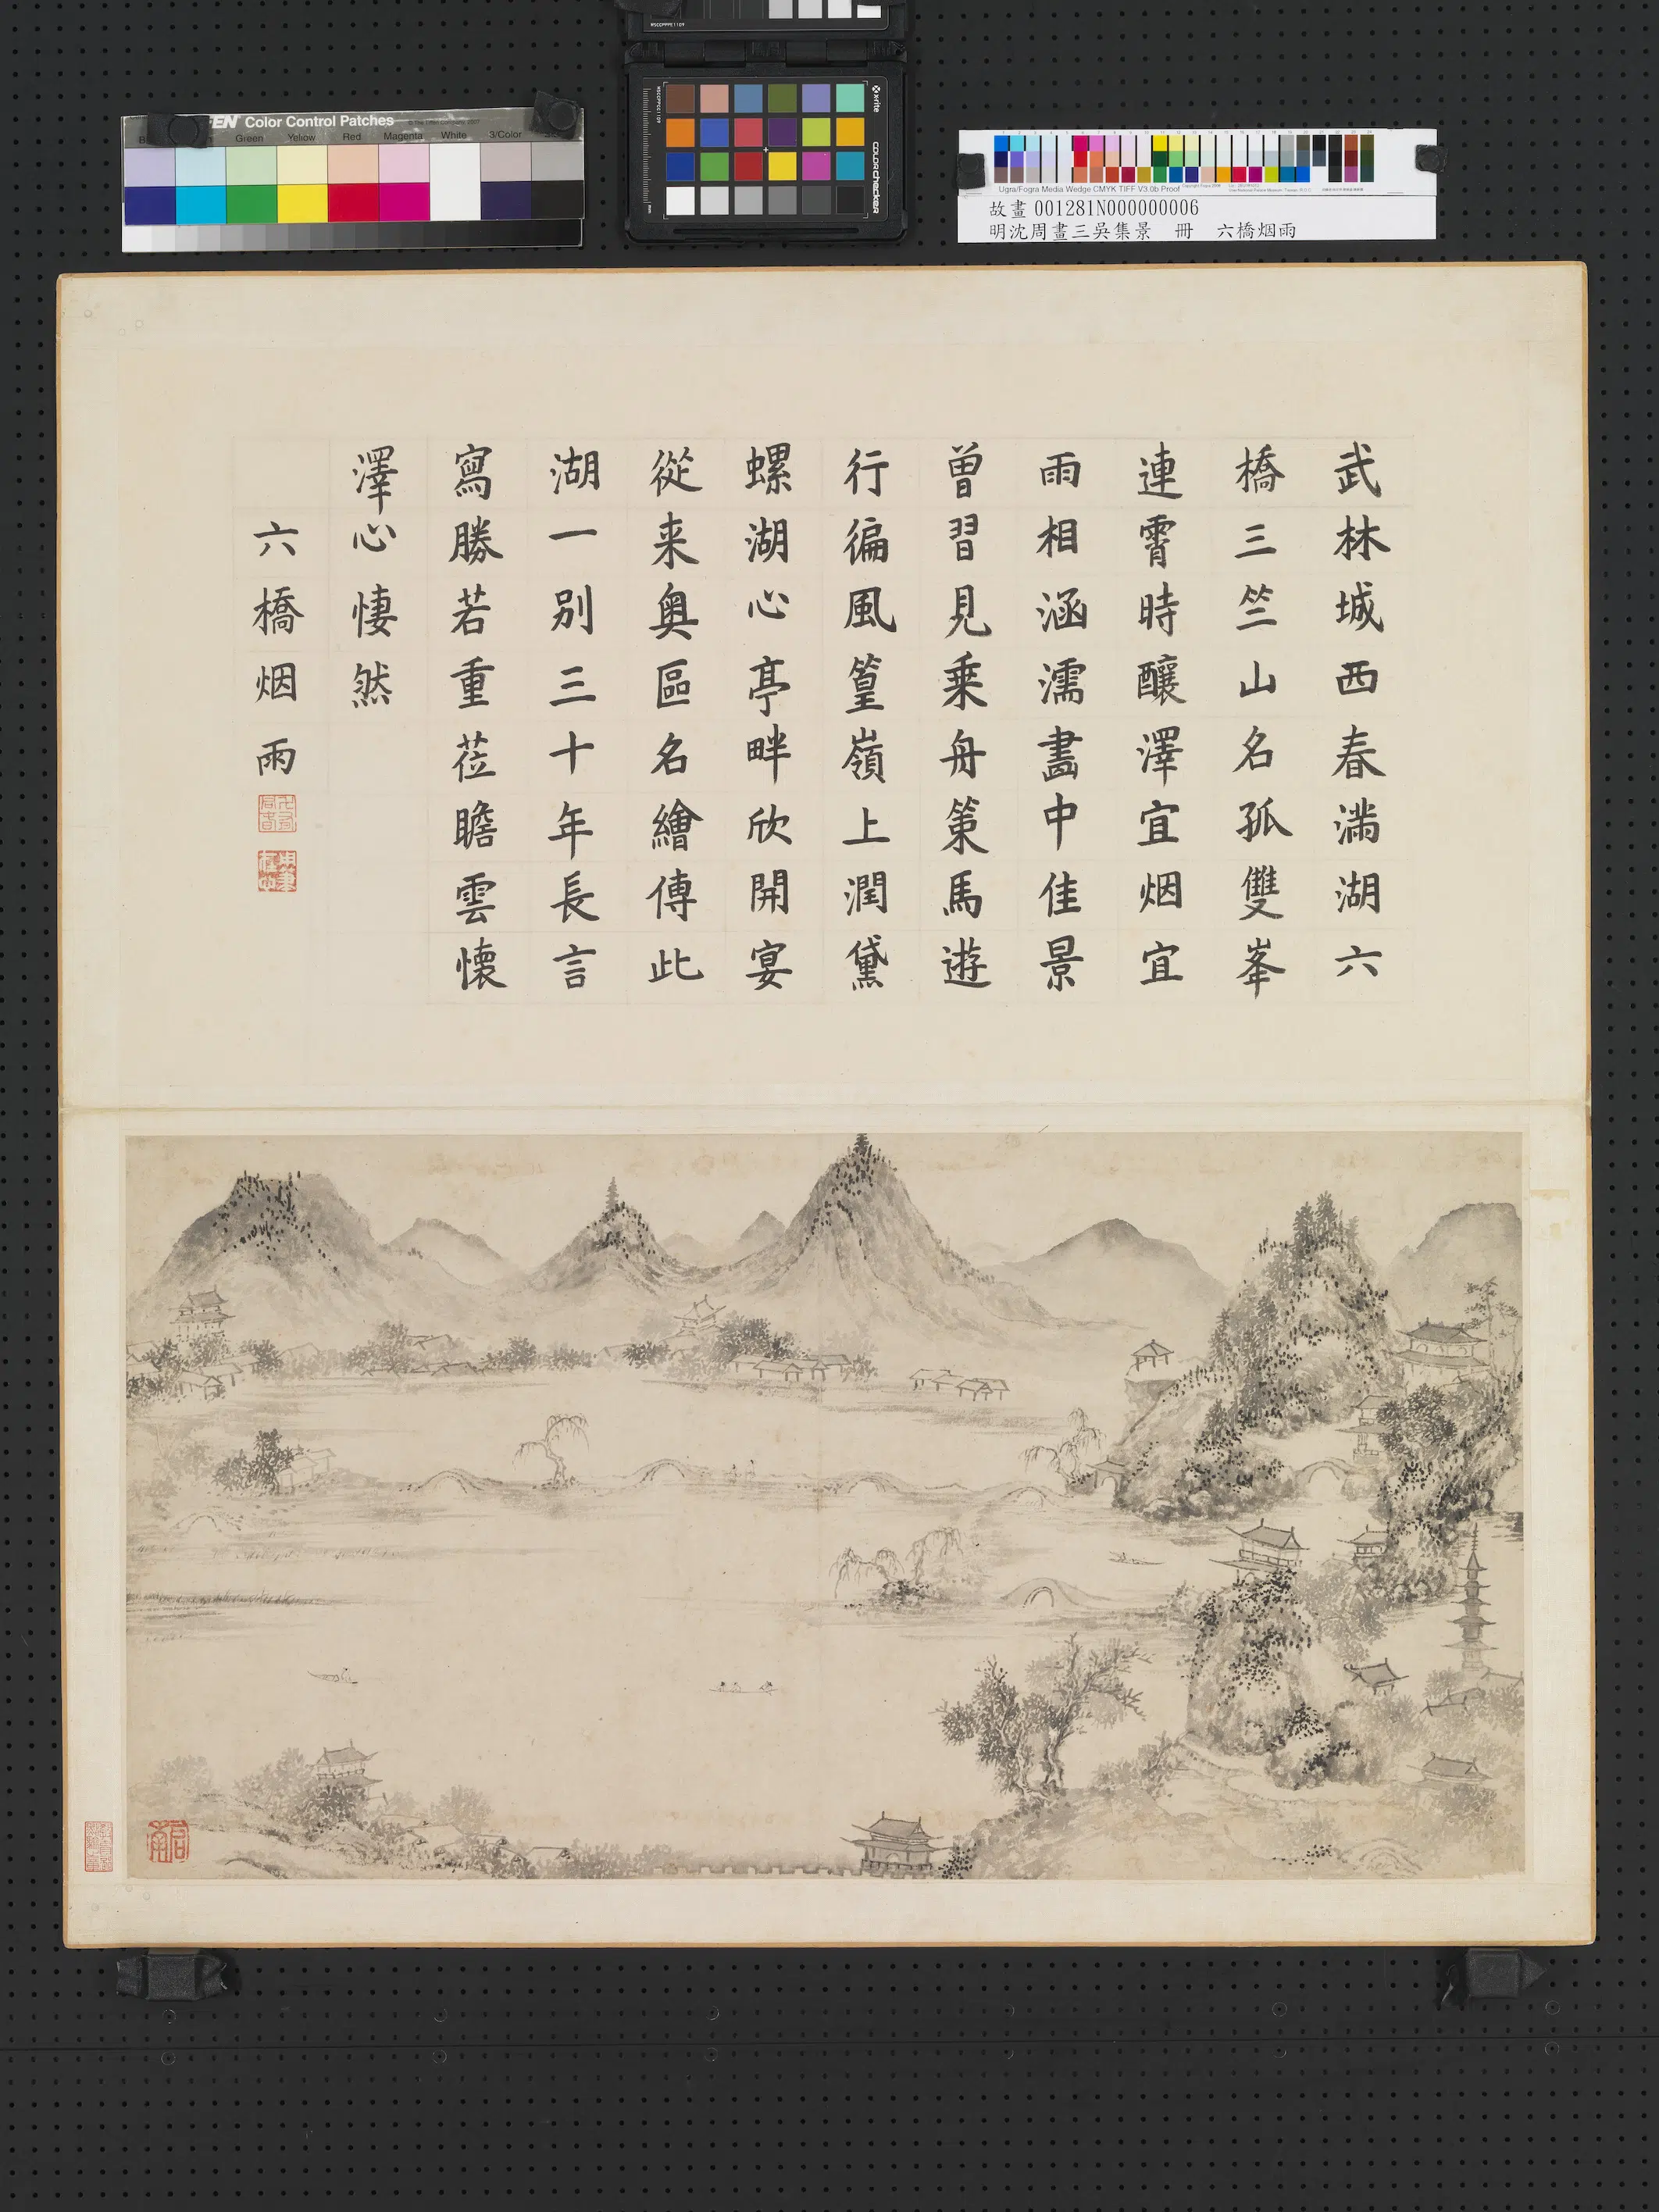 GEN Color Control Patches
Green Yellow Red Magenta White 3/Color
xrite
colorchecker
Ugra/Fogra Media Wedge CMYK TIFF V3.0b Proof
故畫 001281N000000006
明沈周畫三吳集景 冊 六橋烟雨
武林城西春滿湖六
橋三竺山名孤雙峯
連霄時釀澤宜烟宜
雨相涵濡畵中佳景
曾習見乗舟策馬遊
行徧風篁嶺上潤黛
螺湖心亭畔欣開宴
從来奥區名繪傳此
湖一别三十年長言
寫勝若重莅瞻雲懐
澤心悽然
六橋烟雨